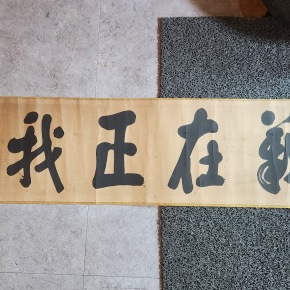 我正在